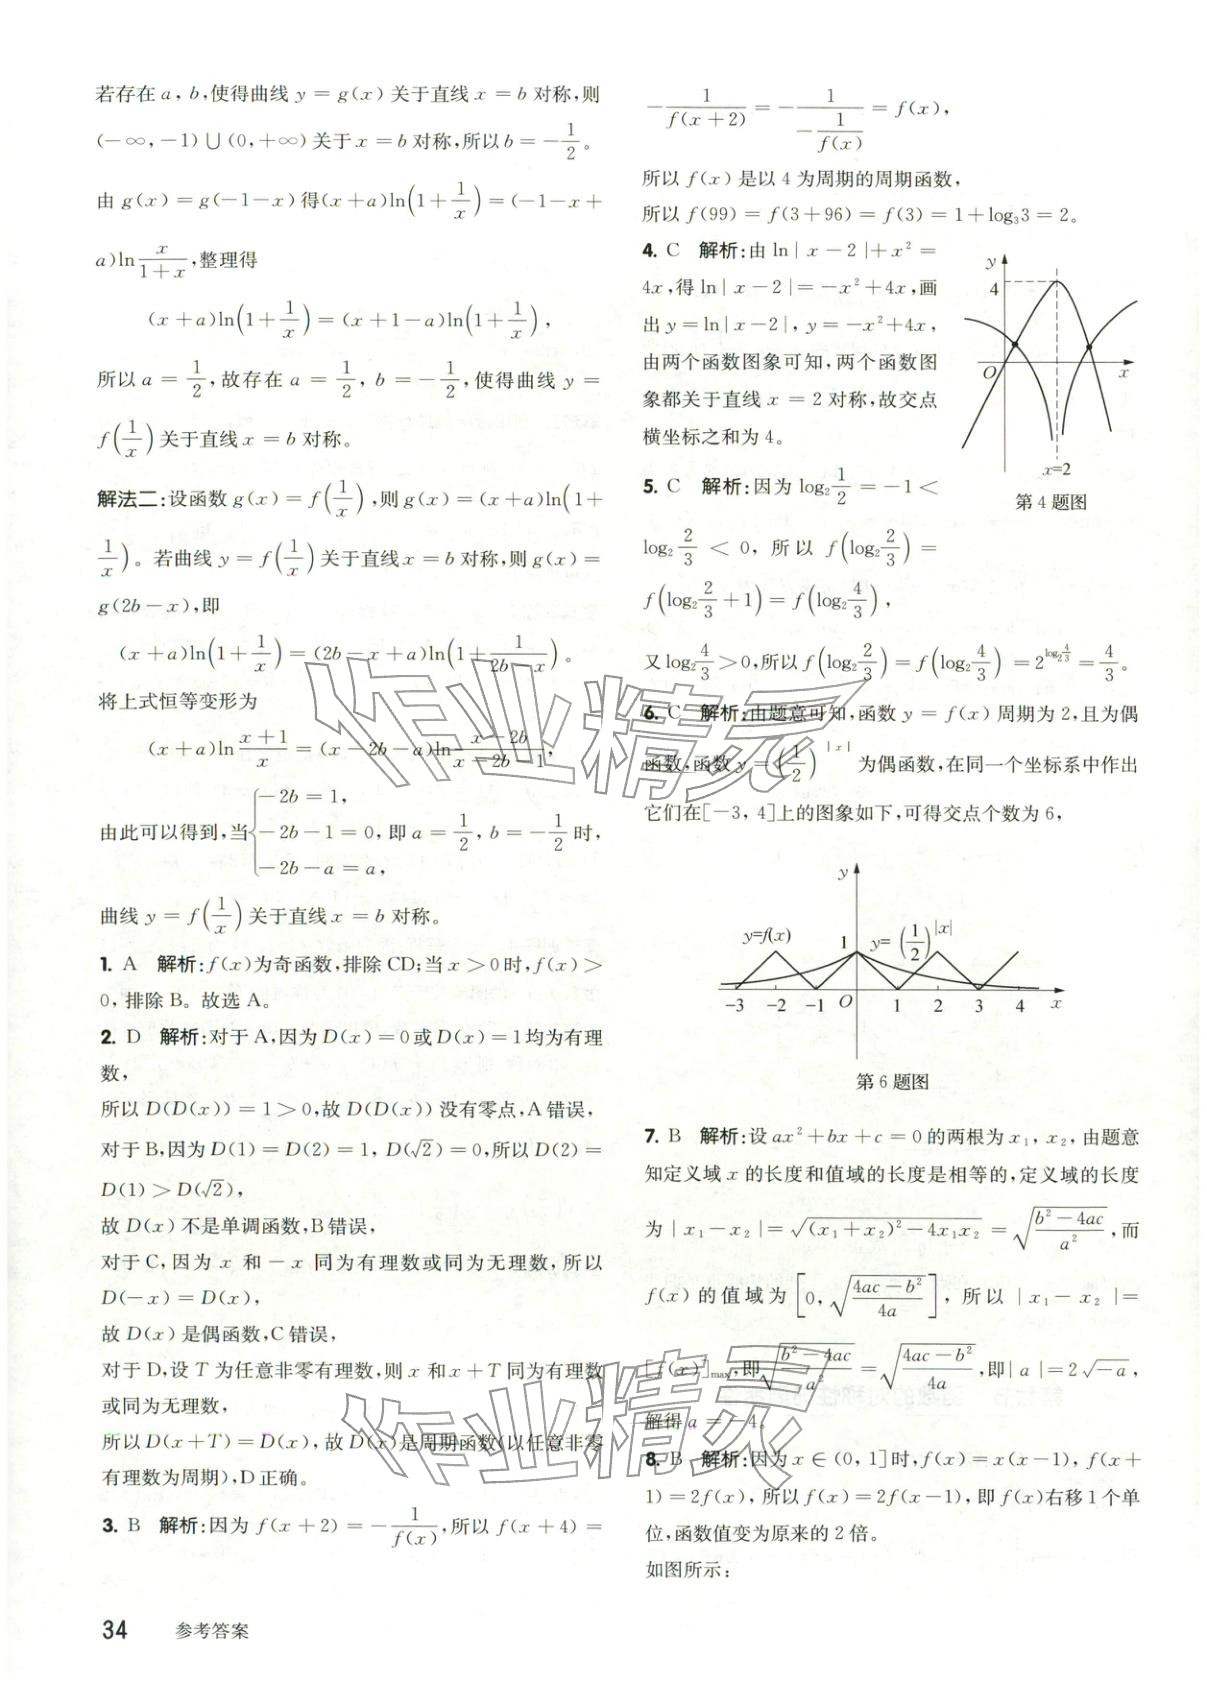 若存在 a, b,使得曲线 y = g(x) 关于直线 x = b 对称,则
(−∞, −1)∪(0, +∞)关于 x = b 对称,所以 b = −1/2。
由 g(x) = g(−1−x) 得(x+a)ln(1+1/x) = (−1−x+
a)ln x/(1+x),整理得
(x+a)ln(1+1/x) = (x+1−a)ln(1+1/x),
所以 a = 1/2,故存在 a = 1/2, b = −1/2,使得曲线 y =
f(1/x)关于直线 x = b 对称。
解法二:设函数 g(x) = f(1/x),则 g(x) = (x+a)ln(1+
1/x)。若曲线 y = f(1/x)关于直线 x = b 对称,则 g(x) =
g(2b−x),即
(x+a)ln(1+1/x) = (2b−x+a)ln(1+1/(2b−x))。
将上式恒等变形为
(x+a)ln (x+1)/x = (x−2b−a)ln (x−2b)/(x−2b−1),
由此可以得到,当{−2b = 1, −2b−1 = 0, −2b−a = a, 即 a = 1/2, b = −1/2 时,
曲线 y = f(1/x)关于直线 x = b 对称。
1. A 解析:f(x)为奇函数,排除 CD;当 x > 0 时,f(x) >
0,排除 B。故选 A。
2. D 解析:对于 A,因为 D(x) = 0 或 D(x) = 1 均为有理
数,
所以 D(D(x)) = 1 > 0,故 D(D(x)) 没有零点,A 错误,
对于 B,因为 D(1) = D(2) = 1, D(√2) = 0,所以 D(2) =
D(1) > D(√2),
故 D(x) 不是单调函数,B 错误,
对于 C,因为 x 和 −x 同为有理数或同为无理数,所以
D(−x) = D(x),
故 D(x) 是偶函数,C 错误,
对于 D,设 T 为任意非零有理数,则 x 和 x+T 同为有理数
或同为无理数,
所以 D(x+T) = D(x),故 D(x)是周期函数(以任意非零
有理数为周期),D 正确。
3. B 解析:因为 f(x+2) = −1/f(x),所以 f(x+4) =
34 参考答案
−1/f(x+2) = −1/(−1/f(x)) = f(x),
所以 f(x) 是以 4 为周期的周期函数,
所以 f(99) = f(3+96) = f(3) = 1+log₃3 = 2。
4. C 解析:由 ln|x−2|+x² =
4x,得 ln|x−2| = −x²+4x,画
出 y = ln|x−2|, y = −x²+4x,
由两个函数图象可知,两个函数图
象都关于直线 x = 2 对称,故交点
横坐标之和为 4。
y
4
O
x
x=2
第 4 题图
5. C 解析:因为 log₂ 1/2 = −1 <
log₂ 2/3 < 0,所以 f(log₂ 2/3) =
f(log₂ 2/3 + 1) = f(log₂ 4/3),
又 log₂ 4/3 > 0,所以 f(log₂ 2/3) = f(log₂ 4/3) = 2^(log₂ 4/3) = 4/3。
6. C 解析:由题意可知,函数 y = f(x) 周期为 2,且为偶
函数,函数 y = (1/2)^|x| 为偶函数,在同一个坐标系中作出
它们在[−3, 4]上的图象如下,可得交点个数为 6,
y
y=f(x)
1
y=(1/2)^|x|
−3 −2 −1 O 1 2 3 4 x
第 6 题图
7. B 解析:设 ax²+bx+c = 0 的两根为 x₁, x₂,由题意
知定义域 x 的长度和值域的长度是相等的,定义域的长度
为 |x₁−x₂| = √((x₁+x₂)²−4x₁x₂) = √((b²−4ac)/a²),而
f(x) 的值域为 [0, √((4ac−b²)/4a)],所以 |x₁−x₂| =
[f(x)]max,即√((b²−4ac)/a²) = √((4ac−b²)/4a),即|a| = 2√−a,
解得 a = −4。
8. B 解析:因为 x ∈ (0, 1]时,f(x) = x(x−1), f(x+
1) = 2f(x),所以 f(x) = 2f(x−1),即 f(x)右移 1 个单
位,函数值变为原来的 2 倍。
如图所示:
作业精灵
作业精灵